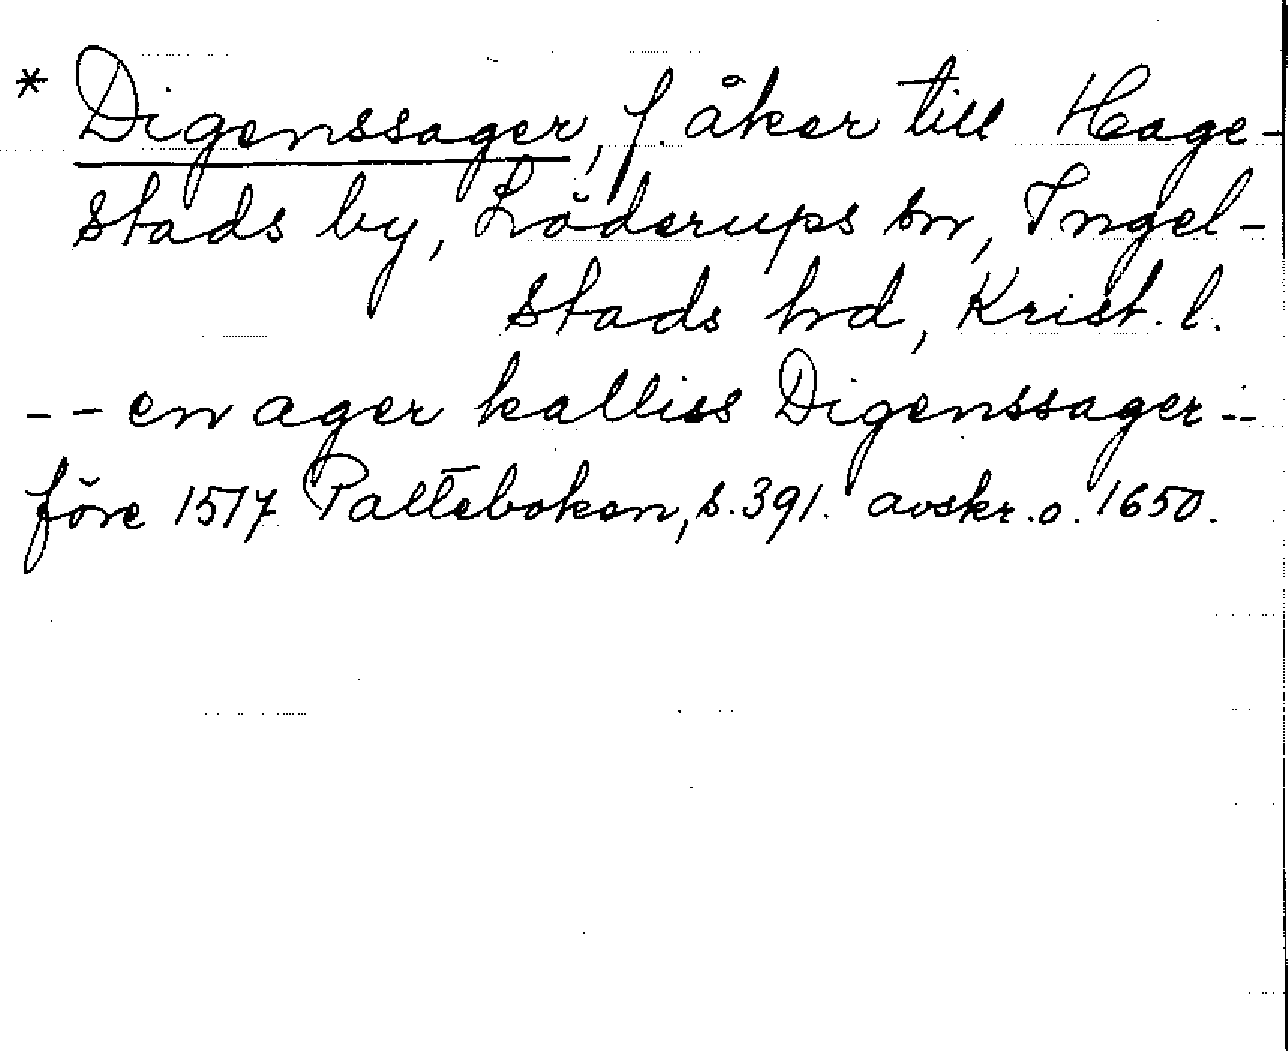 * Digenssager, f. åker till Hage-
stads by, Löderups sn, Ingel-
stads hd, Krist. l.
-- en ager kalliss Digenssager --
före 1517 Palteboken, s. 391. avskr. o. 1650.